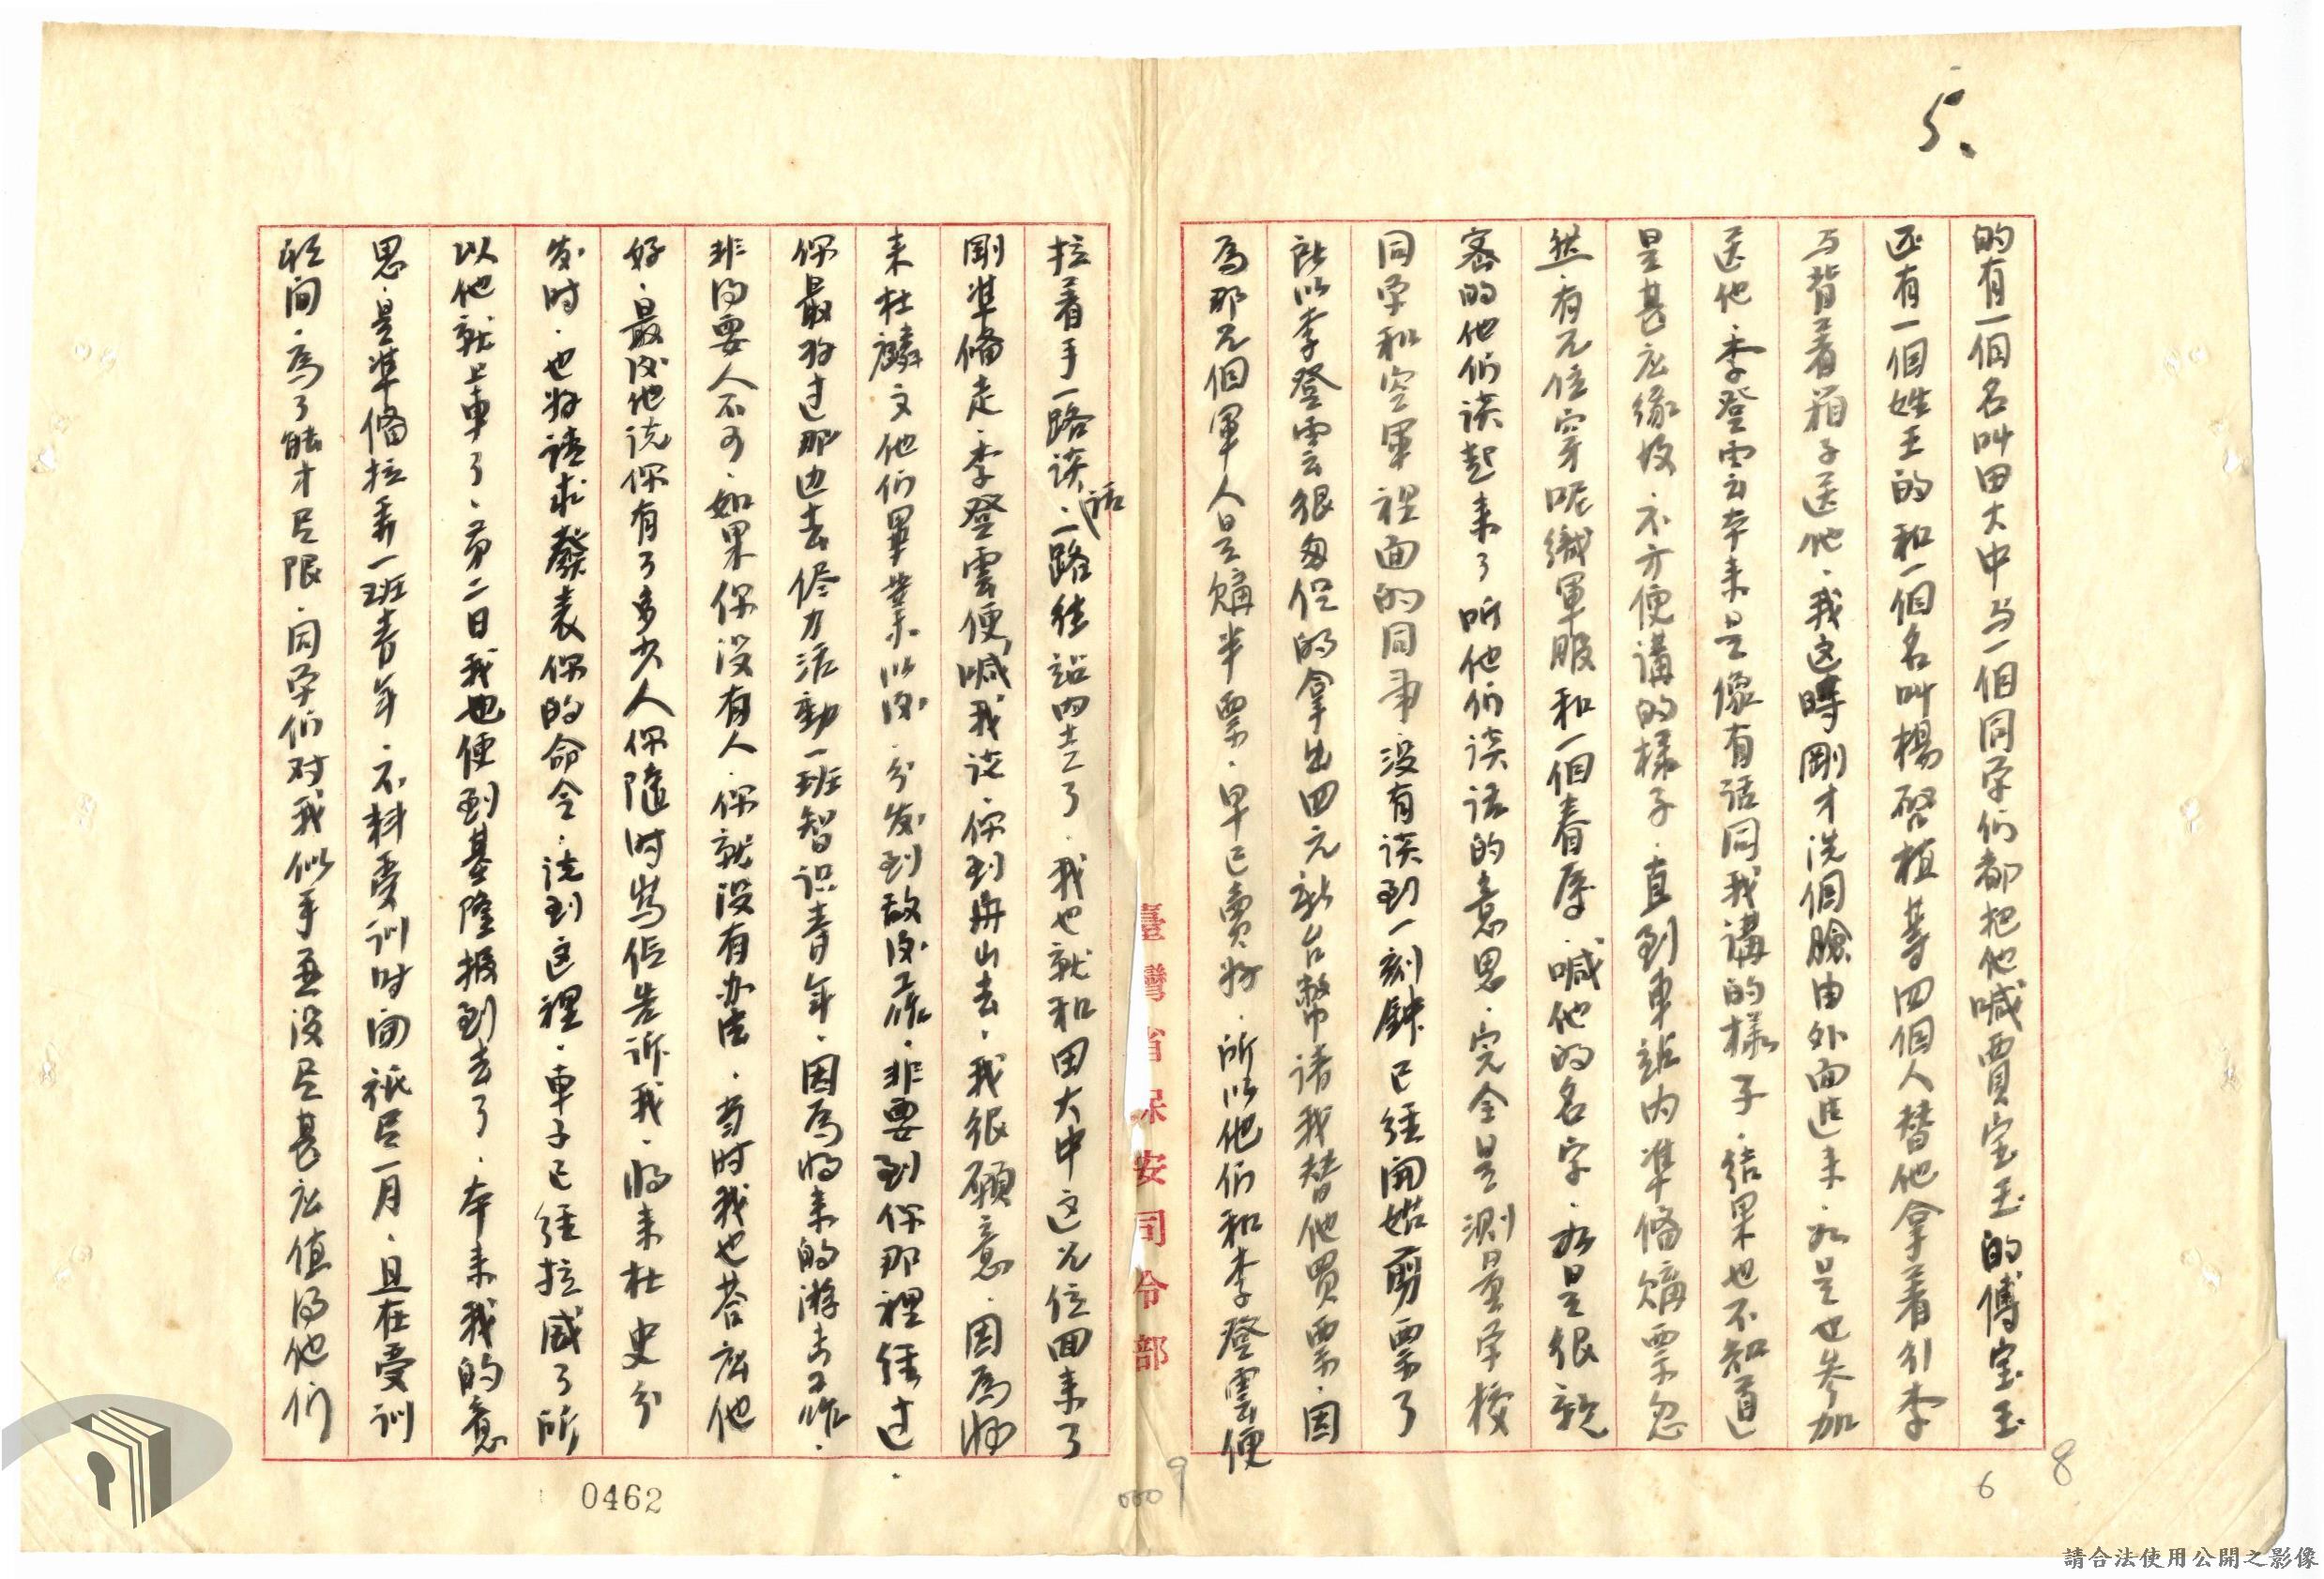 5、
的有一個名叫田大中与一個同学们都把他喊賈宝玉的傅宝玉
还有一個姓王的和一個名叫楊啓植等四個人替他拿着行李
与背着箱子送他．我这時剛才洗個臉由外面進来．於是也参加
送他．李登雲本来是像有話同我講的樣子．結果也不知道
是甚庅缘故．不方便講的樣子．直到車站内準備購票忽
然．有几位穿呢織軍服和一個春厚．喊他的名字．於是很親
密的他们谈起来了听他们谈话的意思．完全是測量学校
同学和空軍裡面的同事．没有谈到一刻鐘已經開始剪票了
所以李登雲很匆促的拿出四元新台幣请我替他買票．因
為那几個軍人是購半票．早已賣好．所以他们和李登雲便
拉着手一路谈話．一路往站内走了．我也就和田大中这几位回来了
剛準備走．李登雲便喊我说．你到舟山去．我很願意．因為將
来杜麟文他们畢業以後．分发到敌後工作．非要到你那裡經过．
你最好过那边去侭力活動一班智识青年．因為將来的游击工作．
非得要人不可．如果你没有人．你就没有办法．当时我也答应他
好．最後他说你有了多少人你隨时写信告诉我．將来杜史分
发时．也好請求發表你的命令．说到这裡．車子已經拉威了所
以他就上車了．第二日我也便到基隆报到去了．本来我的意
思．是準備拉弄一班青年．不料受训时间祇是一月．且在受训
期间．為了能才是限．同学们对我似乎並没是甚庅值得他们
臺灣省保安司令部
0462
9
6
8
請合法使用公開之影像